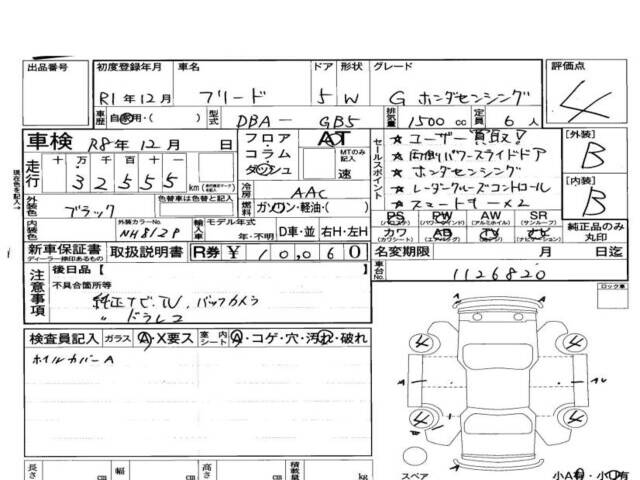 出品番号 初度登録年月 車名 ドア 形状 グレード 評価点
R1年12月 フリード 5 W G ホンダセンシング 4
車歴 自家用・( ) 型式 DBA- GB5 排気量 1500cc 定員 6人
車検 R8年12月 日
フロア・コラム・ダッシュ AT MTのみ記入 速
セールスポイント
★ユーザー買取!
★両側パワースライドドア
★ホンダセンシング
★レーダークルーズコントロール
★スマートキー×2
[外装] B
[内装] B
走行 十万千百十 32555 km
冷房 AAC
燃料 ガソリン・軽油・( )
外装色 ブラック 色替車は色替と記入
内装色 外装カラーNo. NH812P 輸入車 モデル年式 年・不明 D車・並 右H・左H
PS PW AW SR
(パワステ) (パワーウィンド) (アルミホイル) (サンルーフ)
カワ AB TV ナビ
(カワシート) (エアバッグ) (テレビ) (ナビゲーション)
純正品のみ丸印
新車保証書 取扱説明書 R券 ¥10,060 名変期限 月 日迄
ディーラー捺印あるもの
車台No. 1126820
注意事項 後日品[ ]
不具合箇所等
純正ナビ、TV、バックカメラ
〃 ドラレコ
ロック車
検査員記入 ガラス A・X要ス 室内シート A・コゲ・穴・汚れ・破れ
ホイルカバーA
4 4
A
A
4 4
スペア 小A有・小U有
長さ cm 幅 cm 高さ cm 積載量 kg
現在色を記入→